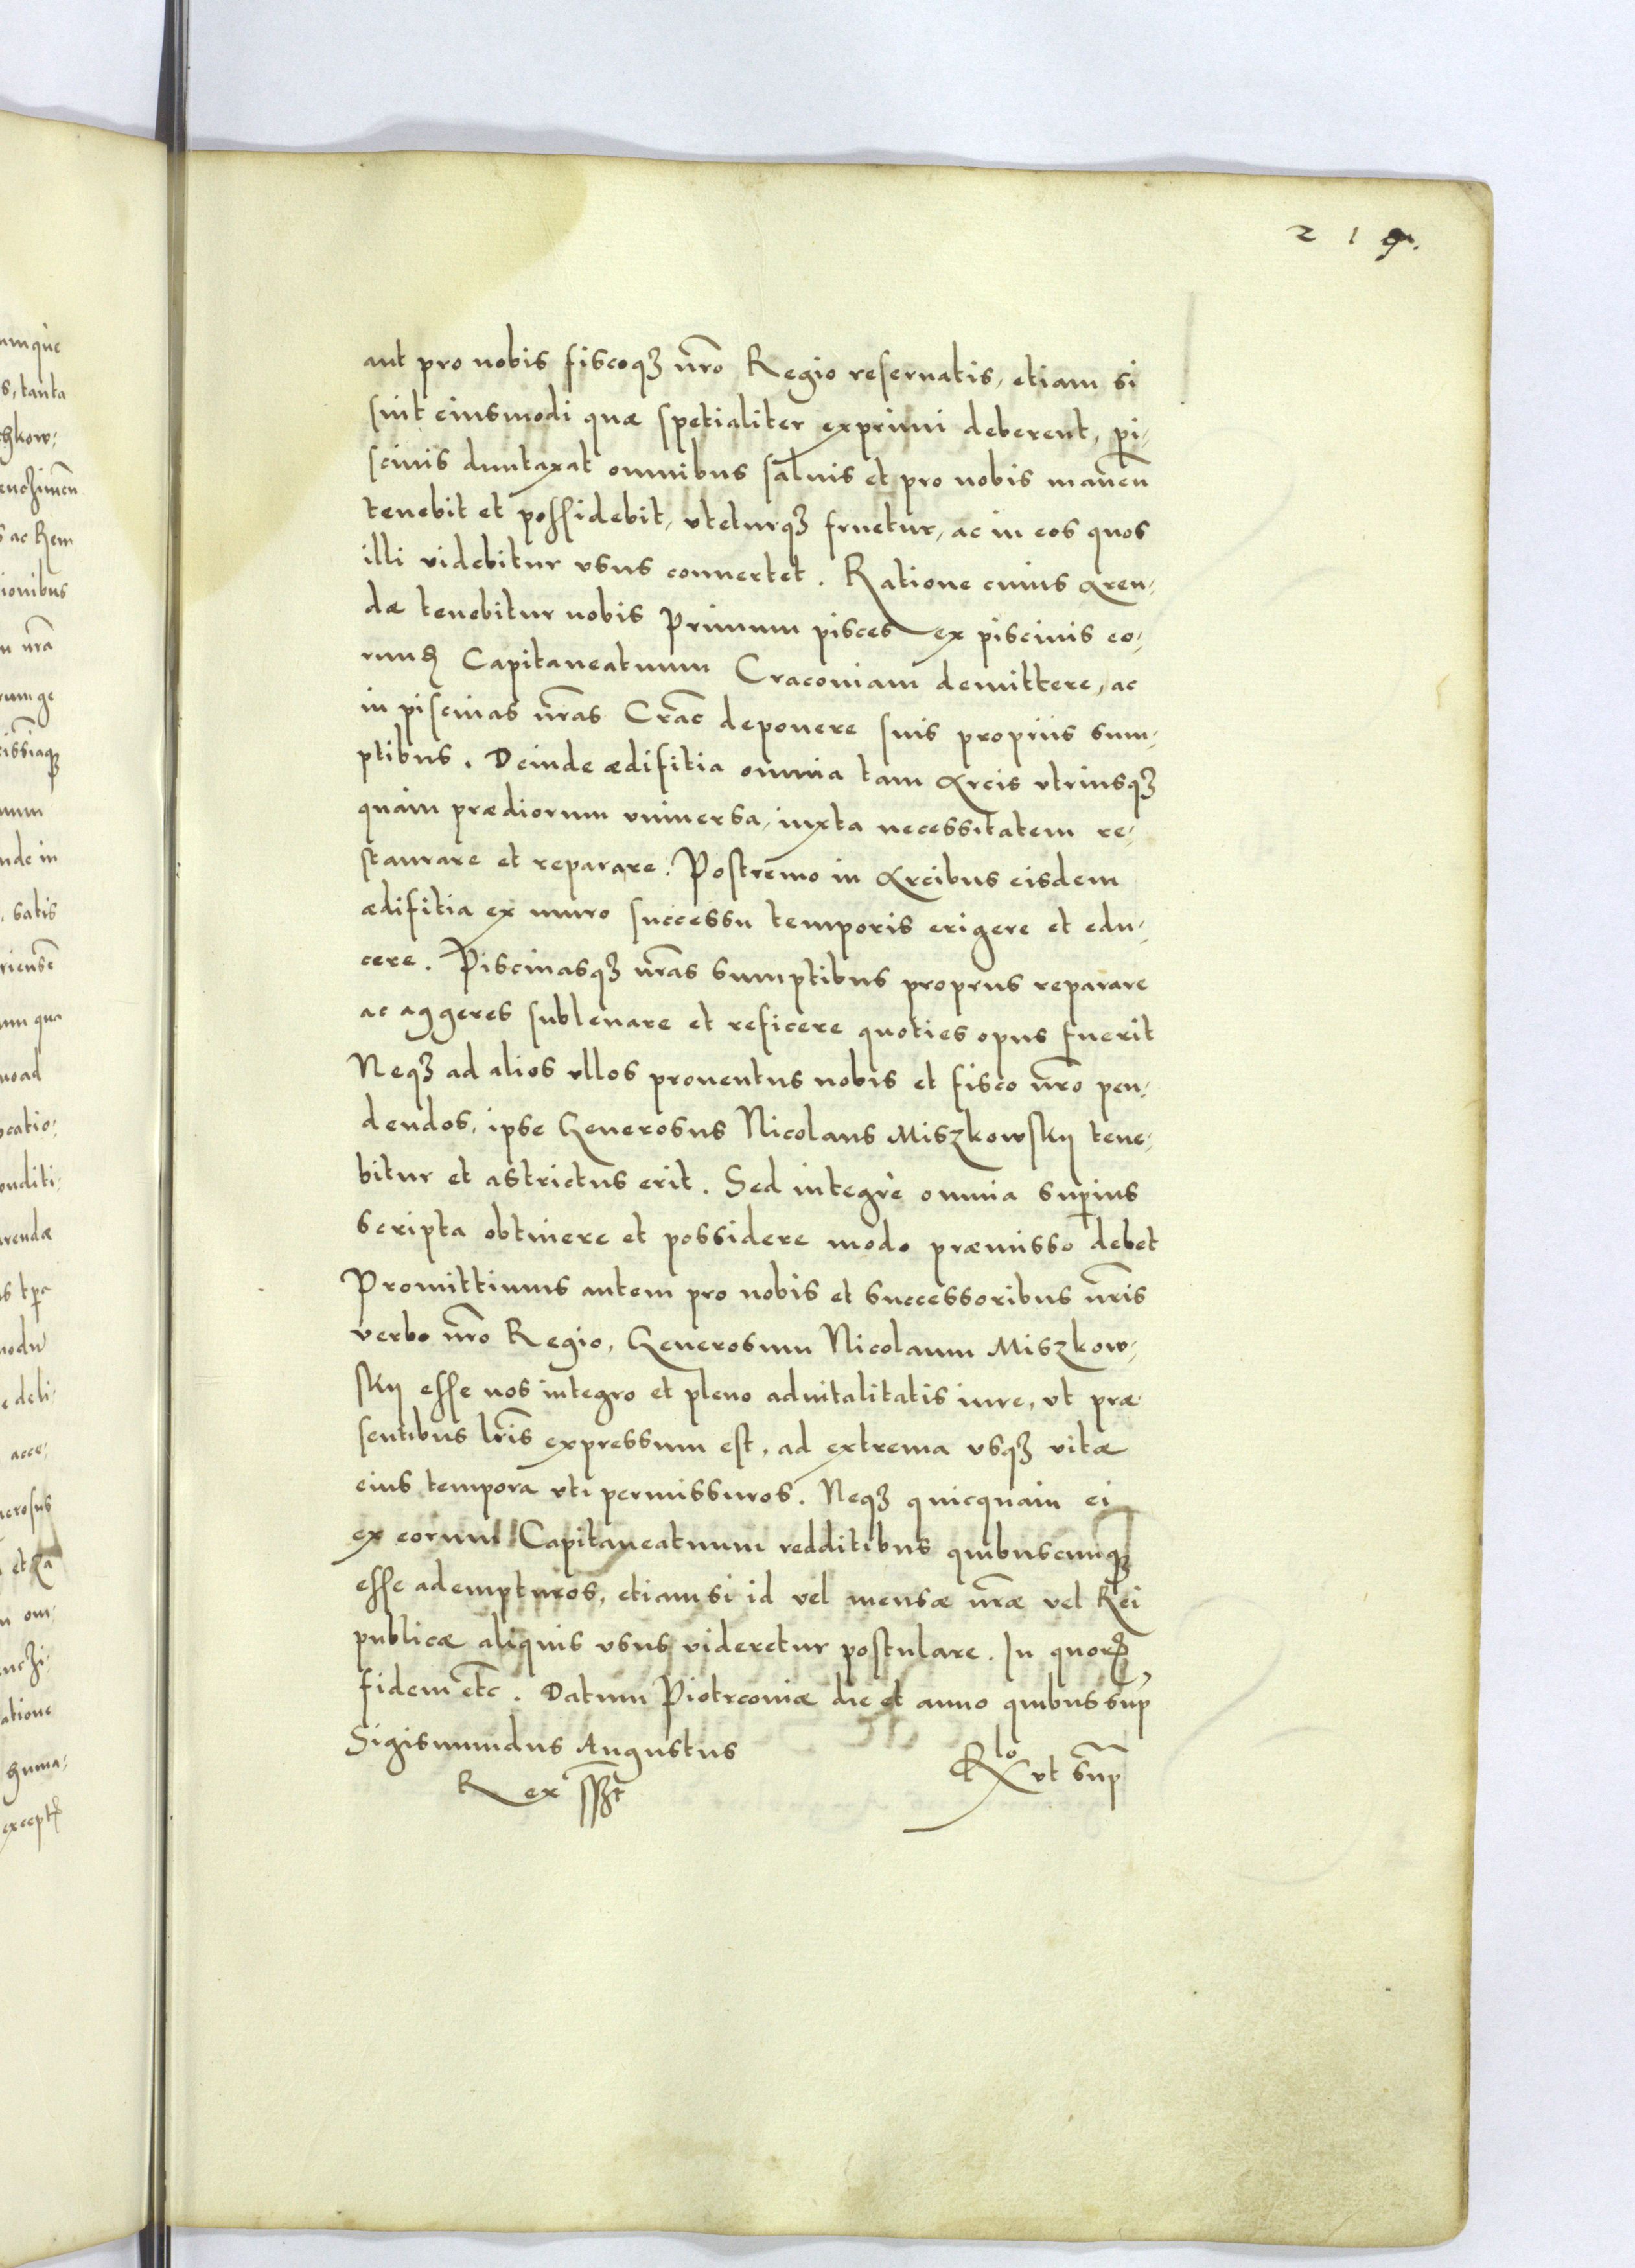 aut pro nobis fiscoqꝫ nr̃o Regio reseruatis, etiam si
sint eiusmodi quæ spetialiter exprimi deberent, pi-
scinis duntaxat omnibus saluis et pro nobis manen̄
tenebit et possidebit, vteturqꝫ fruetur, ac in eos quos
illi videbitur vsus conuertet. Ratione cuius Aren-
dæ tenebitur nobis Primum pisces ex piscinis eo-
rund̃ Capitaneatuum Cracouiam demittere, ac
in piscinas nr̃as Crac̃ deponere suis propriis sum-
ptibus. Deinde ædifitia omnia tam Arcis vtriusqꝫ
quàm prædiorum vniuersa, iuxta necessitatem re-
staurare et reparare. Postremo in Arcibus eisdem
ædifitia ex muro successu temporis erigere et edu-
cere. Piscinasqꝫ nr̃as sumptibus proprus reparare
ac aggeres subleuare et reficere quoties opus fuerit
Neqꝫ ad alios vllos prouentus nobis et fisco nr̃o pen-
dendos, ipse Generosus Nicolaus Miszkowskÿ tene-
bitur et astrictus erit. Sed integrè omnia superius
scripta obtinere et possidere modo præmisso debet
Promittimus autem pro nobis et successoribus nr̃is
verbo nr̃o Regio, Generosum Nicolaum Miszkow-
skÿ esse nos integro et pleno aduitalitatis iure, vt præ
sentibus lr̃is expressum est, ad extrema vsqꝫ vitæ
eius tempora vti permissuros. Neqꝫ quicquam ei
ex eorum Capitaneatuum redditibus quibuscunqꝫ
esse adempturos, etiamsi id vel mensæ nr̃æ vel Rei
publicæ aliquis vsus videretur postulare. In quorꝫ
fidem etc̃. Datum Piotrcouiæ die et anno quibus sup̃
Sigismundus Augustus
Rex sszt
Rlo vt sup̃